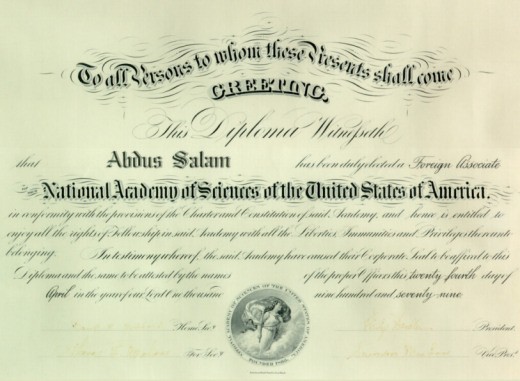 To all Persons to whom these Presents shall come
GREETING.
This Diploma Witnesseth
that Abdus Salam has been duly elected a Foreign Associate
National Academy of Sciences of the United States of America.
in conformity with the provisions of the Charter and Constitution of said Academy, and hence is entitled to
enjoy all the rights of Fellowship in said Academy with all the Liberties Immunities and Privileges thereunto
belonging. In testimony whereof, the said Academy have caused their Corporate Seal to be affixed to this
Diploma and the same to be attested by the names of the proper Officers this twenty fourth day of
April in the year of our Lord one thousand nine hundred and seventy-nine
Home Sec'y President
For Sec'y Vice Pres't
NATIONAL ACADEMY OF SCIENCES OF THE UNITED STATES OF AMERICA